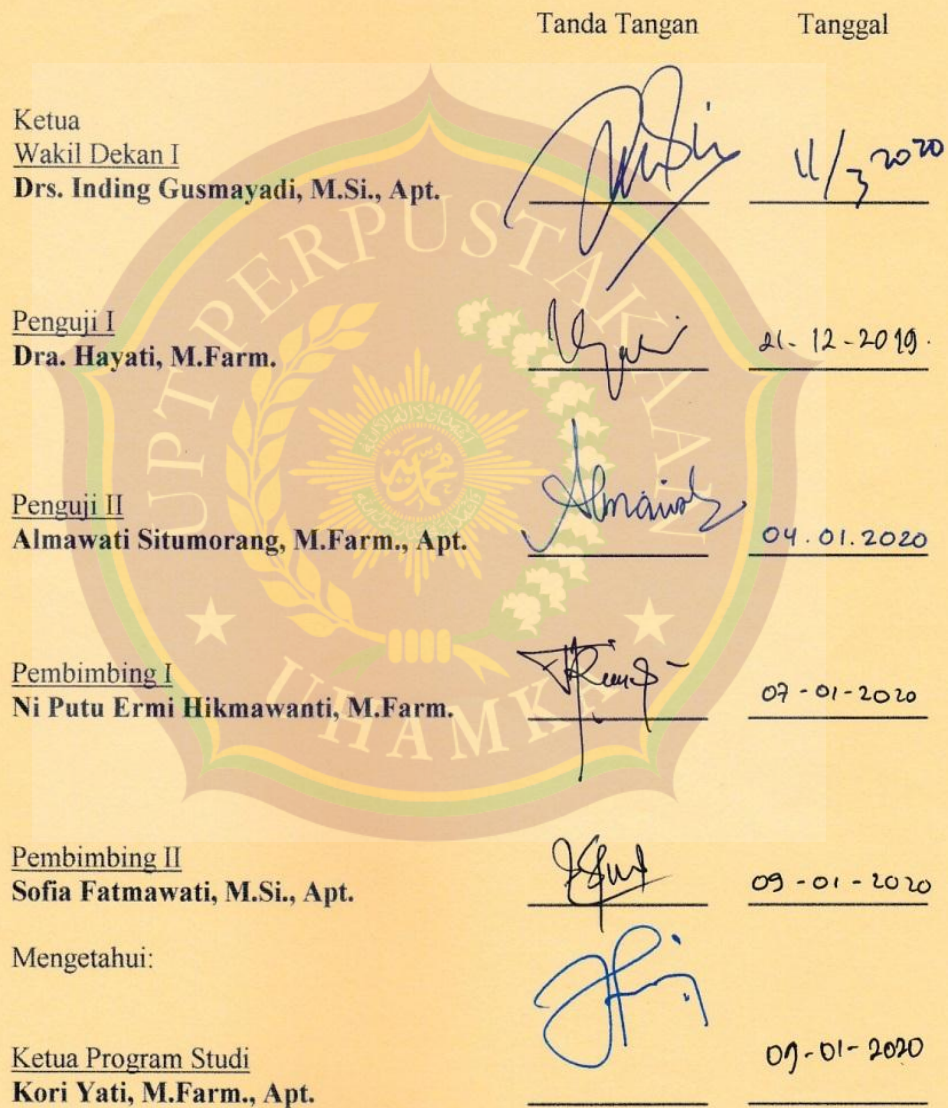 Tanda Tangan Tanggal
Ketua
Wakil Dekan I
Drs. Inding Gusmayadi, M.Si., Apt.
11/3 2020
Penguji I
Dra. Hayati, M.Farm.
21-12-2019.
Penguji II
Almawati Situmorang, M.Farm., Apt.
04.01.2020
Pembimbing I
Ni Putu Ermi Hikmawanti, M.Farm.
07-01-2020
Pembimbing II
Sofia Fatmawati, M.Si., Apt.
09-01-2020
Mengetahui:
Ketua Program Studi
Kori Yati, M.Farm., Apt.
09-01-2020
UPT PERPUSTAKAAN
UHAMKA